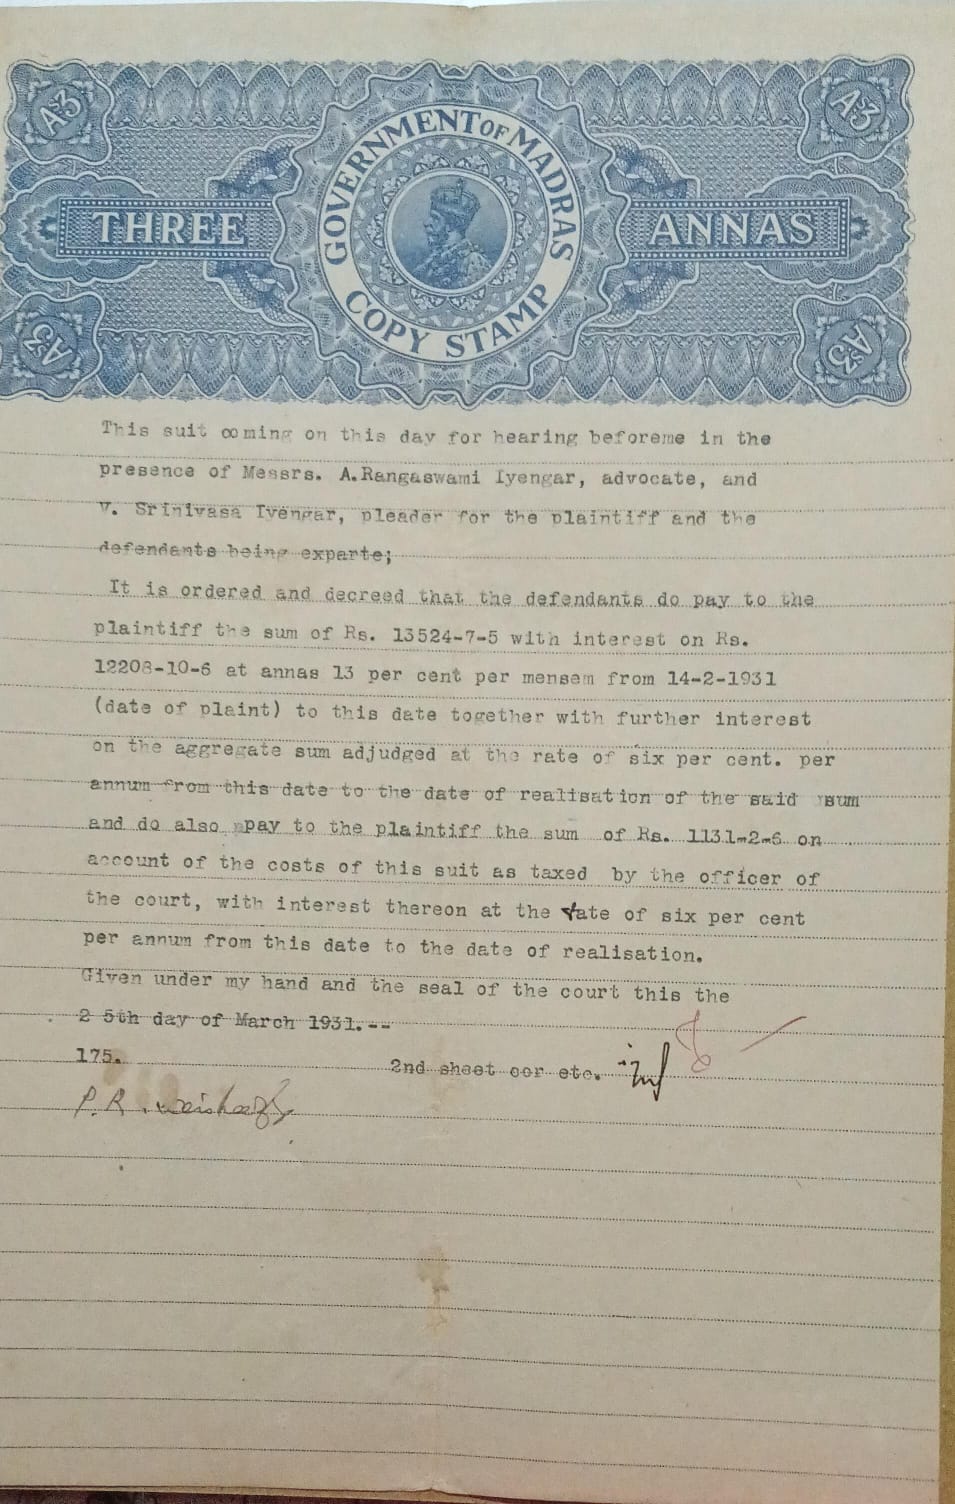 As3 As3
GOVERNMENT OF MADRAS
THREE ANNAS
COPY STAMP
As3 As3
This suit coming on this day for hearing beforeme in the
presence of Messrs. A.Rangaswami Iyengar, advocate, and
V. Srinivasa Iyengar, pleader for the plaintiff and the
defendants being exparte;
It is ordered and decreed that the defendants do pay to the
plaintiff the sum of Rs. 13524-7-5 with interest on Rs.
12208-10-6 at annas 13 per cent per mensem from 14-2-1931
(date of plaint) to this date together with further interest
on the aggregate sum adjudged at the rate of six per cent. per
annum from this date to the date of realisation of the said sum
and do also pay to the plaintiff the sum of Rs. 1131-2-6 on
account of the costs of this suit as taxed by the officer of
the court, with interest thereon at the rate of six per cent
per annum from this date to the date of realisation.
Given under my hand and the seal of the court this the
2 5th day of March 1931.--
175.
2nd sheet cor etc.
P. R.